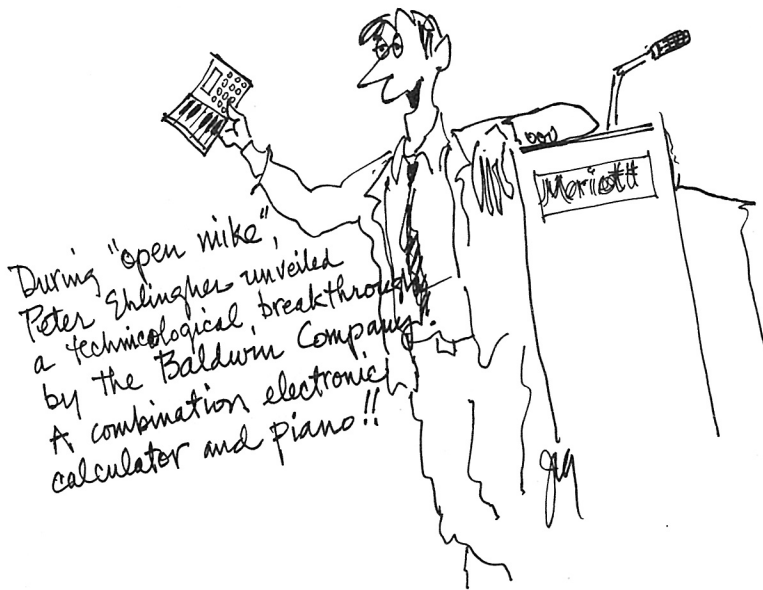 During "open mike",
Peter Ehlingher unveiled
a technicological breakthrough
by the Baldwin Company.
A combination electronic
calculator and piano!!
Meriott